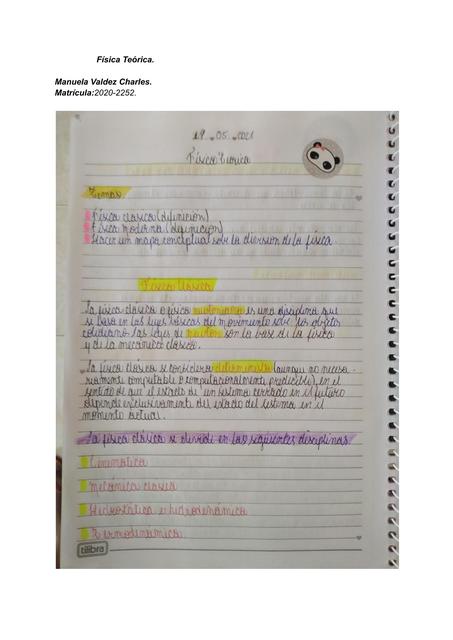 Física Teórica.
Manuela Valdez Charles.
Matrícula:2020-2252.
19 . 05 . 2021
Física Teorica
Temas
Física clasica (definición)
Física moderna (definición)
Hacer un mapa conceptual sobre la división de la física.
Física Clásica
La física clásica o física newtoniana es una disciplina que
se basa en las leyes básicas del movimiento sobre los objetos
cotidianos las leyes de newton son la base de la física
y de la mecánica clásica.
La física clásica se considera determinista (aunque no necesa-
riamente computable o computacionalmente predecible), en el
sentido de que el estado de un sistema cerrado en el futuro
depende exclusivamente del estado del sistema en el
momento actual.
La física clásica se divide en las siguientes disciplinas
Cinematica
Mecánica clasica
Hidrostática e hidrodinámica
Termodinamica
tilibra